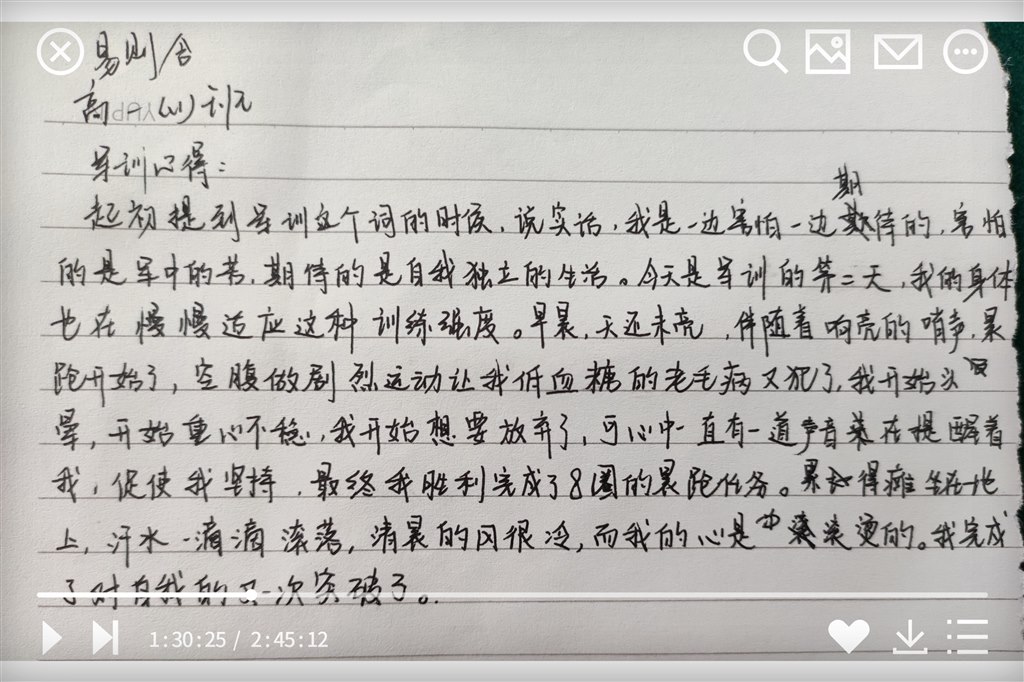 易则含
高 (21) 班
军训心得：
期
起初提到军训这个词的时候，说实话，我是一边害怕一边期待的，害怕
的是军中的苦，期待的是自我独立的生活。今天是军训的第二天，我的身体
也在慢慢适应这种训练强度。早晨，天还未亮，伴随着响亮的哨声，晨
跑开始了，空腹做剧烈运动让我低血糖的老毛病又犯了，我开始头
晕，开始重心不稳，我开始想要放弃了，可心中一直有一道声音在提醒着
我，促使我坚持，最终我胜利完成了8圈的晨跑任务。累得瘫坐在地
上，汗水一滴滴滚落，清晨的风很冷，而我的心是滚烫的。我完成
了对自我的又一次突破了。
1:30:25 / 2:45:12